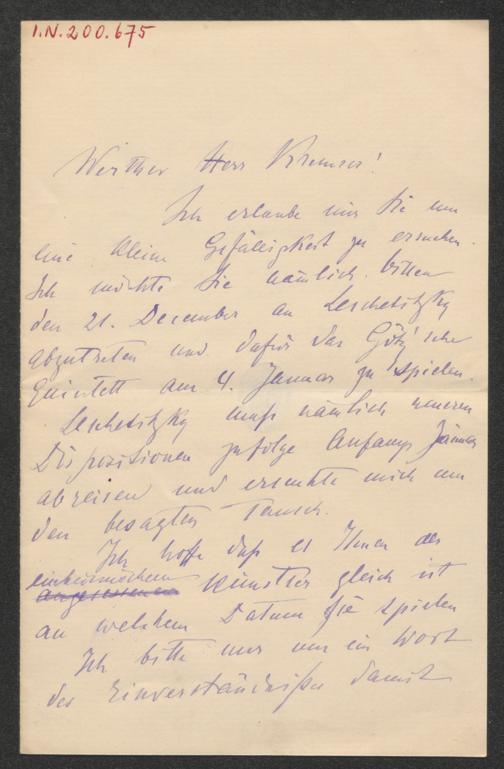 I.N.200.675
Werther Herr Kremser!
Ich erlaube mir Sie um
eine kleine Gefälligkeit zu ersuchen.
Ich möchte Sie nämlich bitten
den 21. December an Leschetitzky
abzutreten und dafür das Götz'sche
Quintett am 4. Januar zu spielen.
Leschetitzky muß nämlich neueren
Dispositionen zufolge Anfangs Jänner
abreisen und ersuchte mich um
den besagten Tausch.
Ich hoffe daß es Ihnen als
einheimischem
Künstler gleich ist
an welchem Datum Sie spielen
Ich bitte nur um ein Wort
des Einverständnißes damit